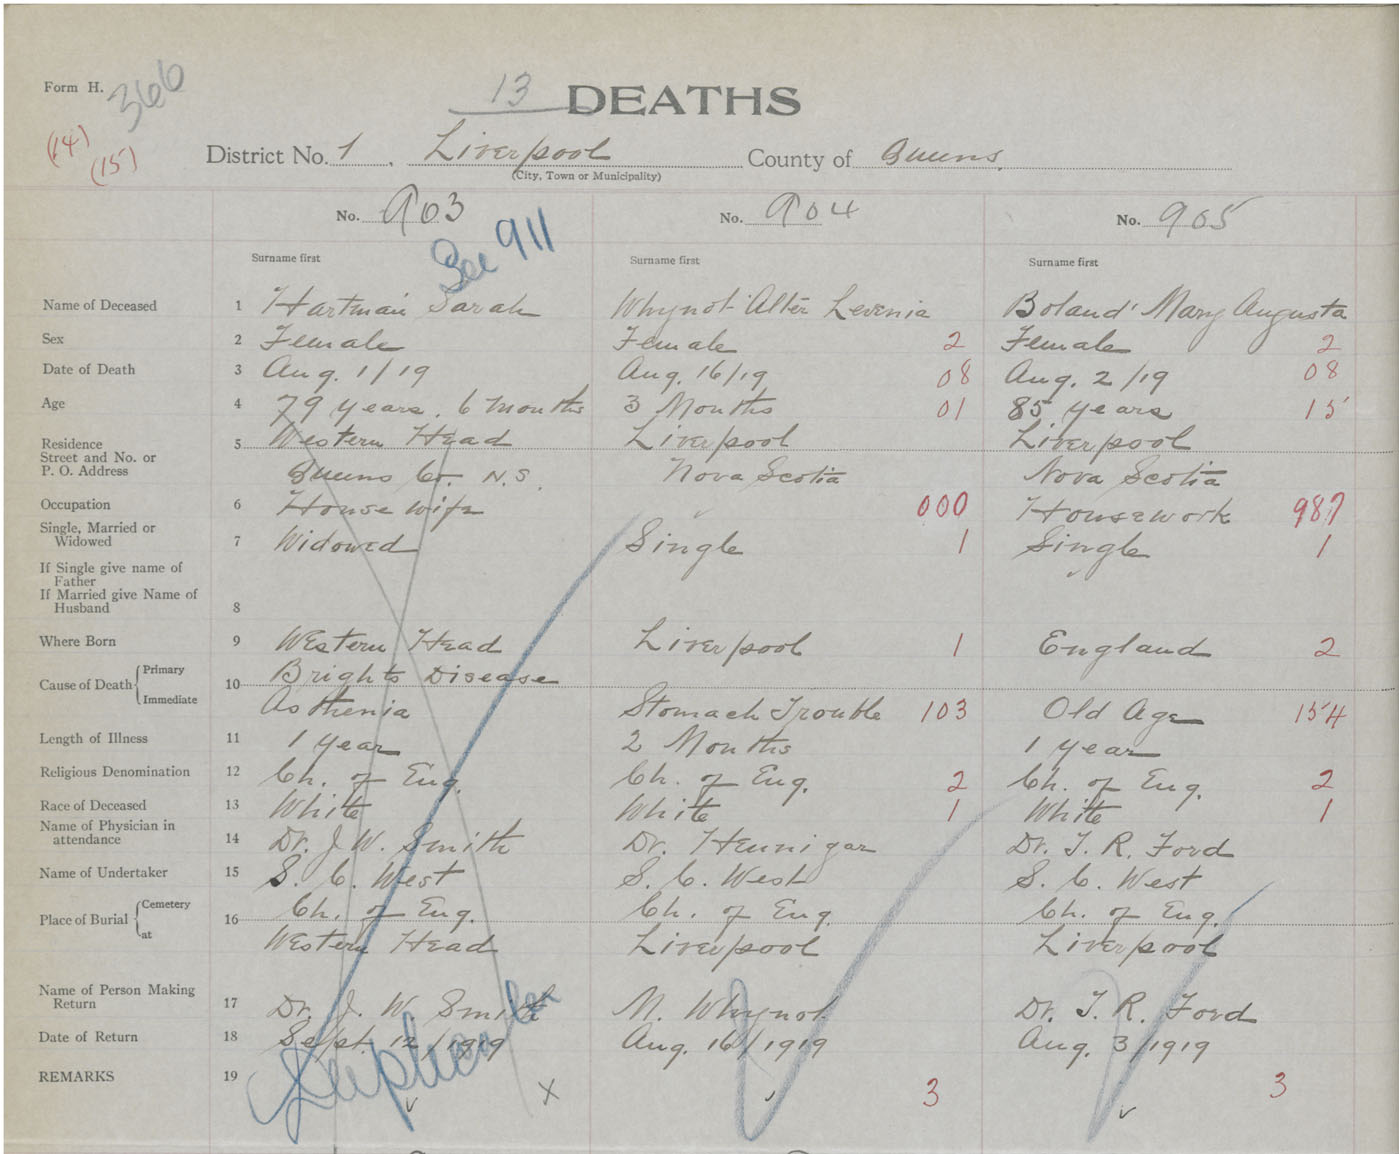 Form H.
366
13 DEATHS
(14)
(15)
District No. 1, Liverpool County of Queens.
(City, Town or Municipality)
No. 903 No. 904 No. 905
See 911
Surname first Surname first Surname first
Name of Deceased 1 Hartman Sarah Whynot Alter Levenia Boland Mary Augusta
Sex 2 Female Female 2 Female 2
Date of Death 3 Aug. 1/19 Aug. 16/19 08 Aug. 2/19 08
Age 4 79 years. 6 months 3 Months 01 85 years 15
Residence 5 Western Head Liverpool Liverpool
Street and No. or
P. O. Address Queens Co. N.S. Nova Scotia Nova Scotia
Occupation 6 House wife 000 Housework 987
Single, Married or
Widowed 7 Widowed Single 1 Single 1
If Single give name of
Father
If Married give Name of
Husband 8
Where Born 9 Western Head Liverpool 1 England 2
Cause of Death 10 Primary Brights Disease
Immediate Asthenia Stomach Trouble 103 Old Age 154
Length of Illness 11 1 year 2 Months 1 year
Religious Denomination 12 Ch. of Eng. Ch. of Eng. 2 Ch. of Eng. 2
Race of Deceased 13 White White 1 White 1
Name of Physician in
attendance 14 Dr. J. W. Smith Dr. Hennigar Dr. T. R. Ford
Name of Undertaker 15 S. C. West S. C. West S. C. West
Place of Burial 16 Cemetery Ch. of Eng. Ch. of Eng. Ch. of Eng.
at Western Head Liverpool Liverpool
Name of Person Making
Return 17 Dr. J. W. Smith M. Whynot Dr. T. R. Ford
Date of Return 18 Sept. 12/1919 Aug. 16/1919 Aug. 3/1919
REMARKS 19 September 3 3